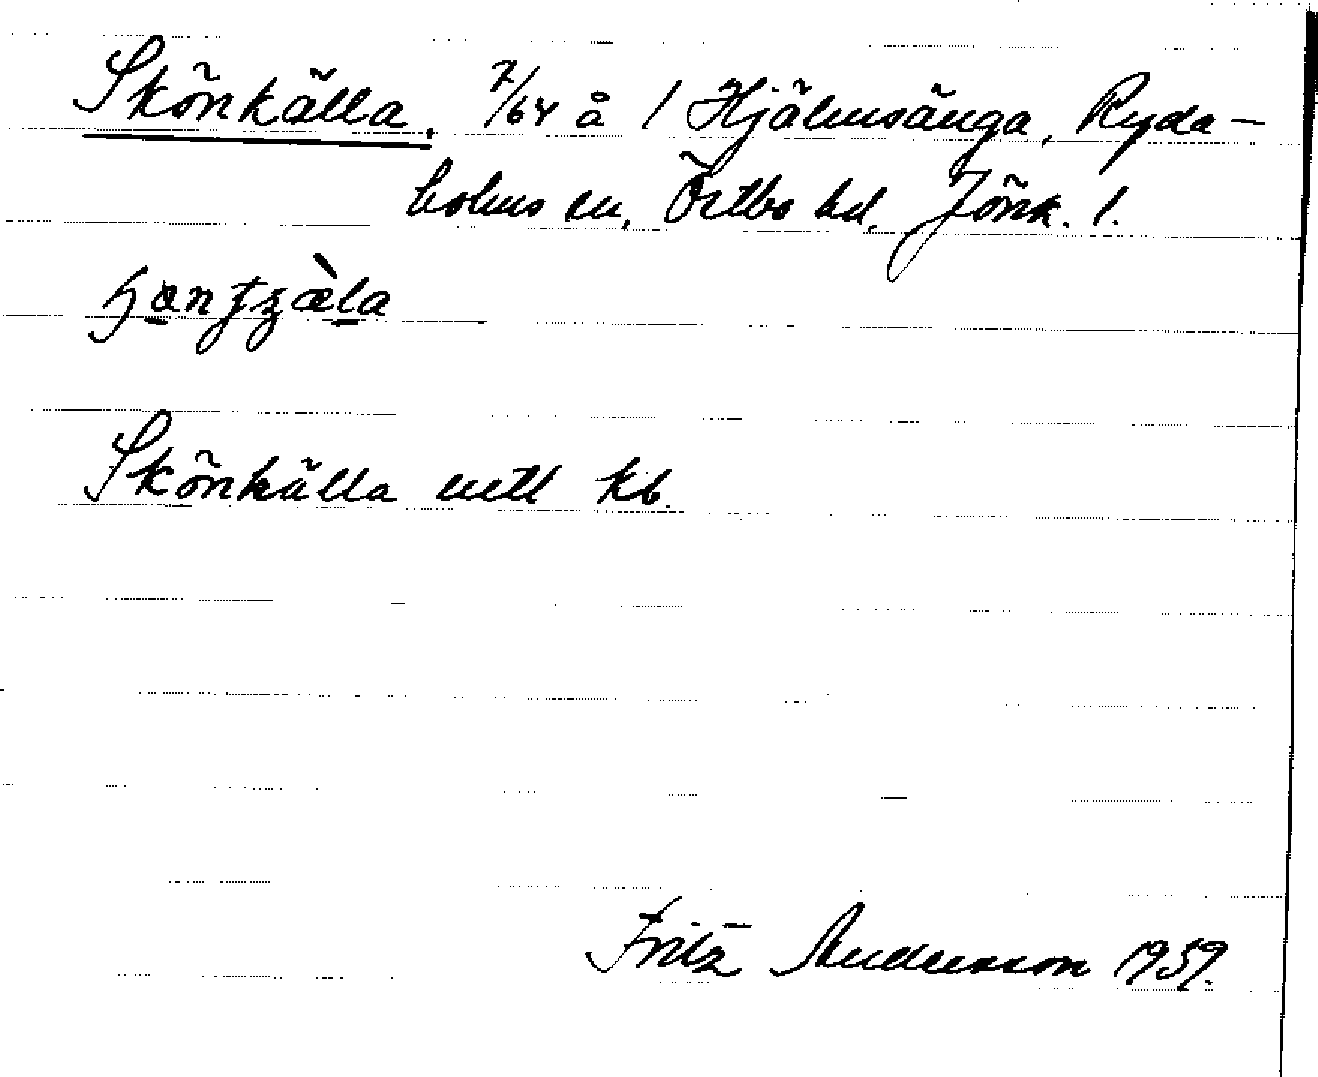 Skönkälla, 7/64 å 1 Hjälmsänga, Ryda-
holms sn, Östbo hd, Jönk. l.
Skönkälla mtl kb.
Fritz Andersson 1959.